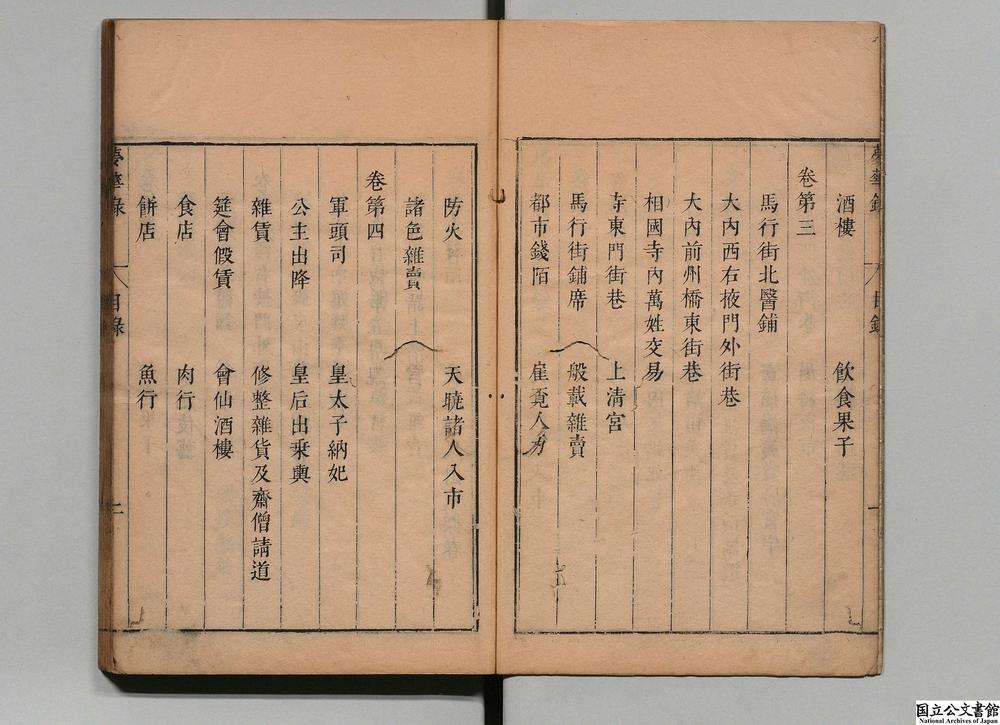 夢華錄 目錄 一
酒樓 飲食果子
卷第三
馬行街北醫鋪
大內西右掖門外街巷
大內前州橋東街巷
相國寺內萬姓交易
寺東門街巷 上清宮
馬行街鋪席 般載雜賣
都市錢陌 雇覔人力
防火 天曉諸人入市
諸色雜賣
卷第四
軍頭司 皇太子納妃
公主出降 皇后出乗輿
雜賃 修整雜貨及齋僧請道
筵會假賃 會仙酒樓
食店 肉行
餅店 魚行
夢華錄 目錄 二
国立公文書館
National Archives of Japan